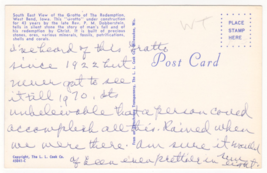 South East View of the Grotto of The Redemption,
West Bend, Iowa. This "grotto" under construction
for 42 years by the late Rev. P. M. Dobberstein,
tells in silent stone the story of man's fall and of
his redemption by Christ. It is built of precious
stones, ores, various minerals, fossils, petrifications,
shells and corals.
WT
PLACE
STAMP
HERE
Post Card
I've heard of this Grotto
since 1922 but
never got to see
it till 1970. Its
unbelievable that a person could
accomplish all this. Rained when
we were there. Am sure it would
of been even prettier in
Copyright, The L. L. Cook Co.